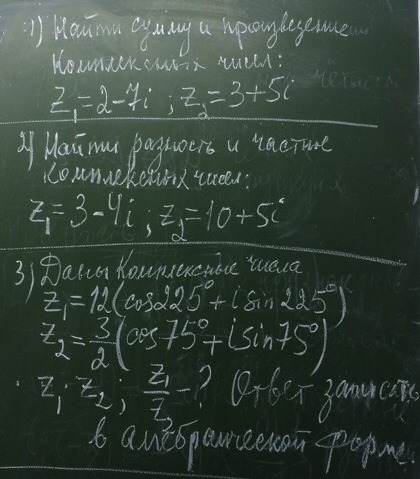 1) Найти сумму и произведение
комплексных чисел:
z₁=2-7i ; z₂=3+5i
2) Найти разность и частное
комплексных чисел:
z₁=3-4i ; z₂=10+5i
3) Даны комплексные числа
z₁=12(cos225°+isin225°)
z₂=3/2(cos75°+isin75°)
z₁·z₂ ; z₁/z₂ -? Ответ записать
в алгебраической форме.